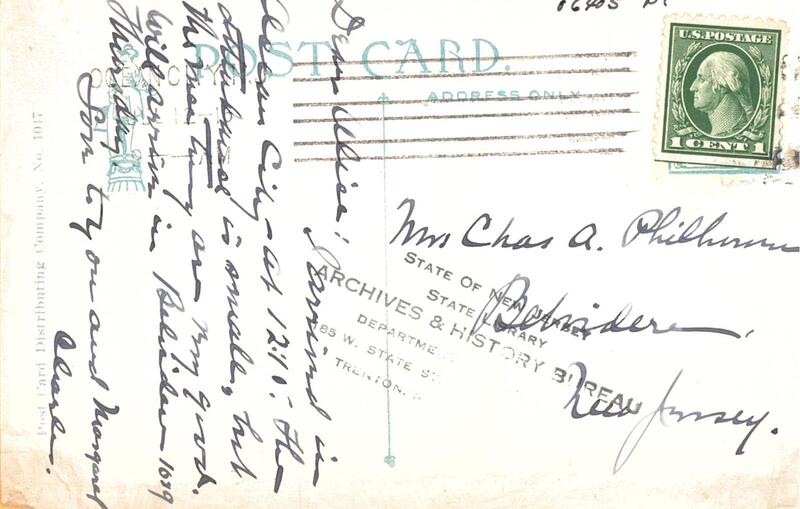 POST CARD.
ADDRESS ONLY
U.S. POSTAGE
1 CENT 1
Dear Alice: Arrived in
Ocean City at 12:10. The
attendance is small, but
the meetings are very good.
Will arrive in Belvidere 10:19
Thursday
Love to you and Margaret
Charles.
Mrs Chas A. 
Belvidere,
New Jersey.
STATE OF NEW JERSEY
STATE LIBRARY
ARCHIVES & HISTORY BUREAU
185 W. STATE ST
TRENTON,
Post Card Distributing Company, No. 1017